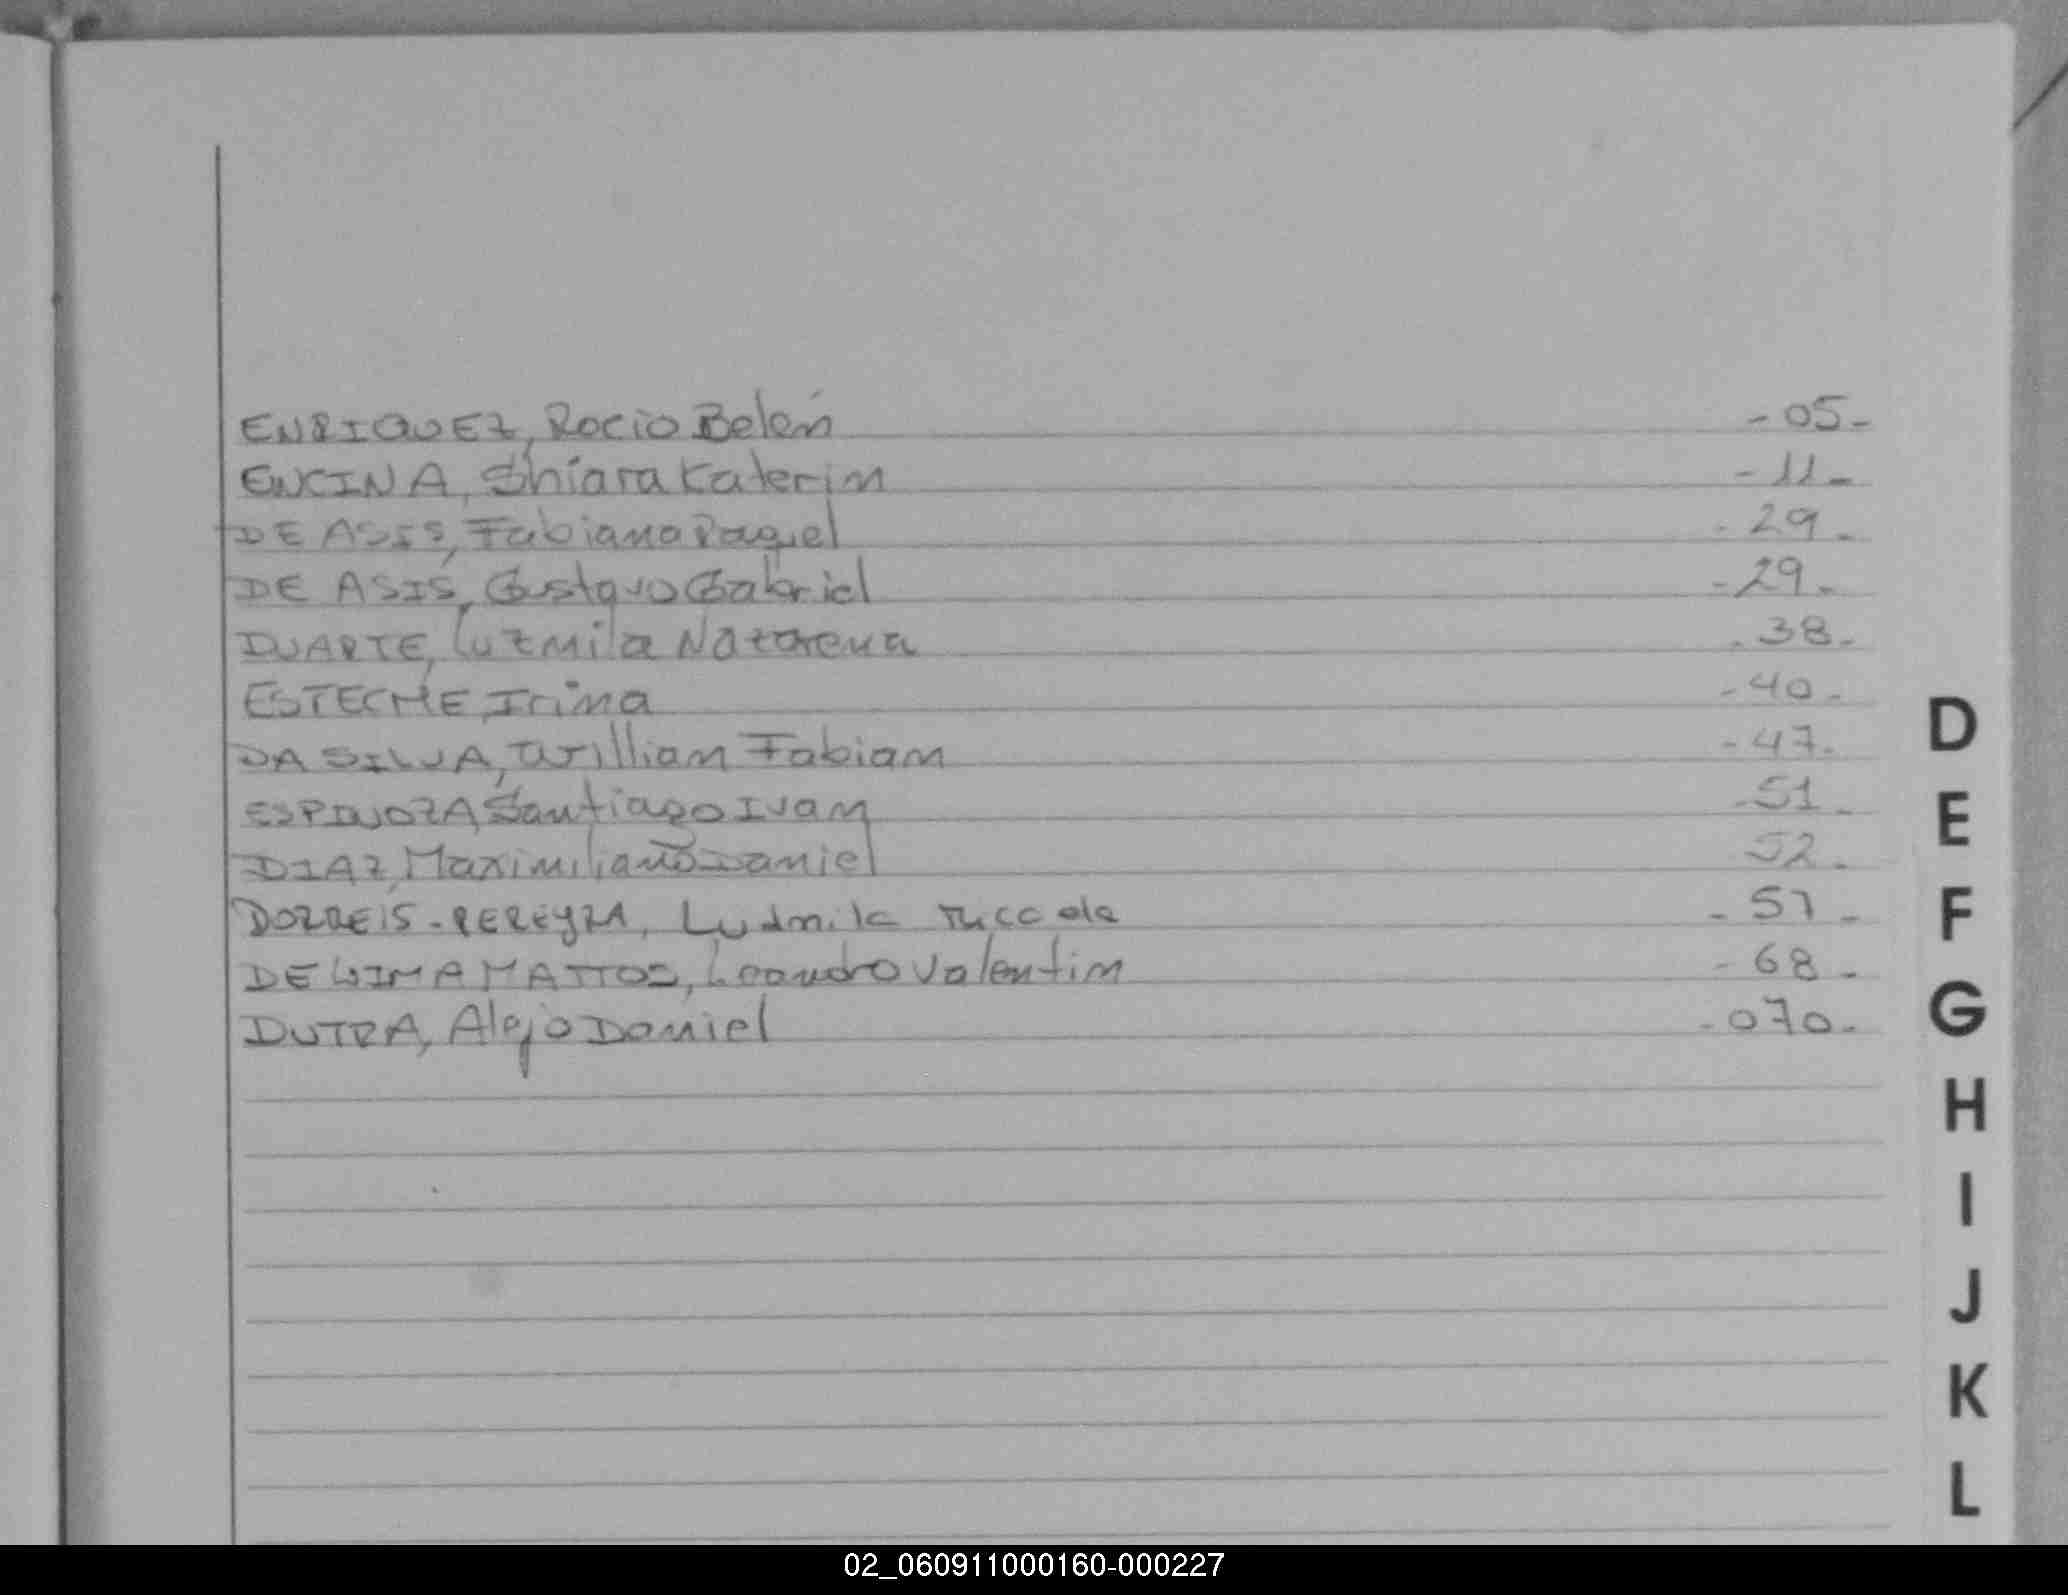 ENRIQUEZ, Rocio Belén -05-
ENCINA, Shiara Katerin -11-
DE ASIS, Fabiana Raquel -29-
DE ASIS, Gustavo Gabriel -29-
DUARTE, Luzmila Nazarena -38-
ESTECHE, Irina -40-
DA SILVA, Willian Fabian -47-
ESPINOZA, Santiago Ivan -51-
DIAZ, Maximiliano Daniel 52-
DORREIS-PEREYRA, Ludmila -57-
DE LIMA MATTOS, Leandro Valentin -68-
DUTRA, Alejo Daniel -070-
D
E
F
G
H
I
J
K
L
02_060911000160-000227